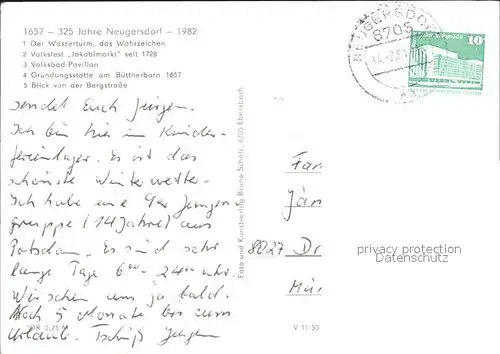 1657 – 325 Jahre Neugersdorf – 1982
1 Der Wasserturm, das Wahrzeichen
2 Volksfest „Jakobimarkt" seit 1728
3 Volksbad-Pavillon
4 Gründungsstätte am Büttnerborn 1657
5 Blick von der Bergstraße
NEUGERSDORF
8705
10
sendet Euch Jürgen.
Ich bin hier im Kinder-
ferienlager. Es ist das
schönste Winterwetter.
Ich habe eine Jungen-
gruppe (14 Jahre) aus
Potsdam. Es sind sehr
lange Tage 6⁰⁰ - 24⁰⁰ Uhr.
Wir sehen uns ja bald.
Noch 5 Monate bis zum
Urlaub. Tschüß Jürgen
Foto und Kunstverlag Bruno Scholz, 8705 Ebersbach
Fam
Jän
8027 Dr
Mün
privacy protection
Datenschutz
V 11 50